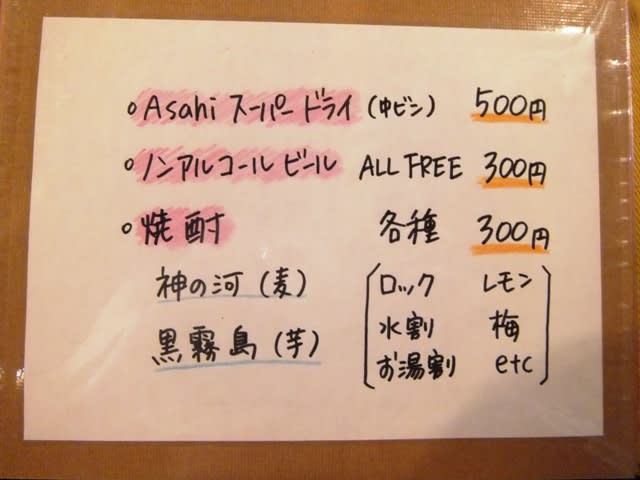 Asahi スーパードライ (中ビン) 500円
ノンアルコールビール ALL FREE 300円
焼酎 各種 300円
神の河 (麦) ロック レモン
水割 梅
黒霧島 (芋) お湯割 etc